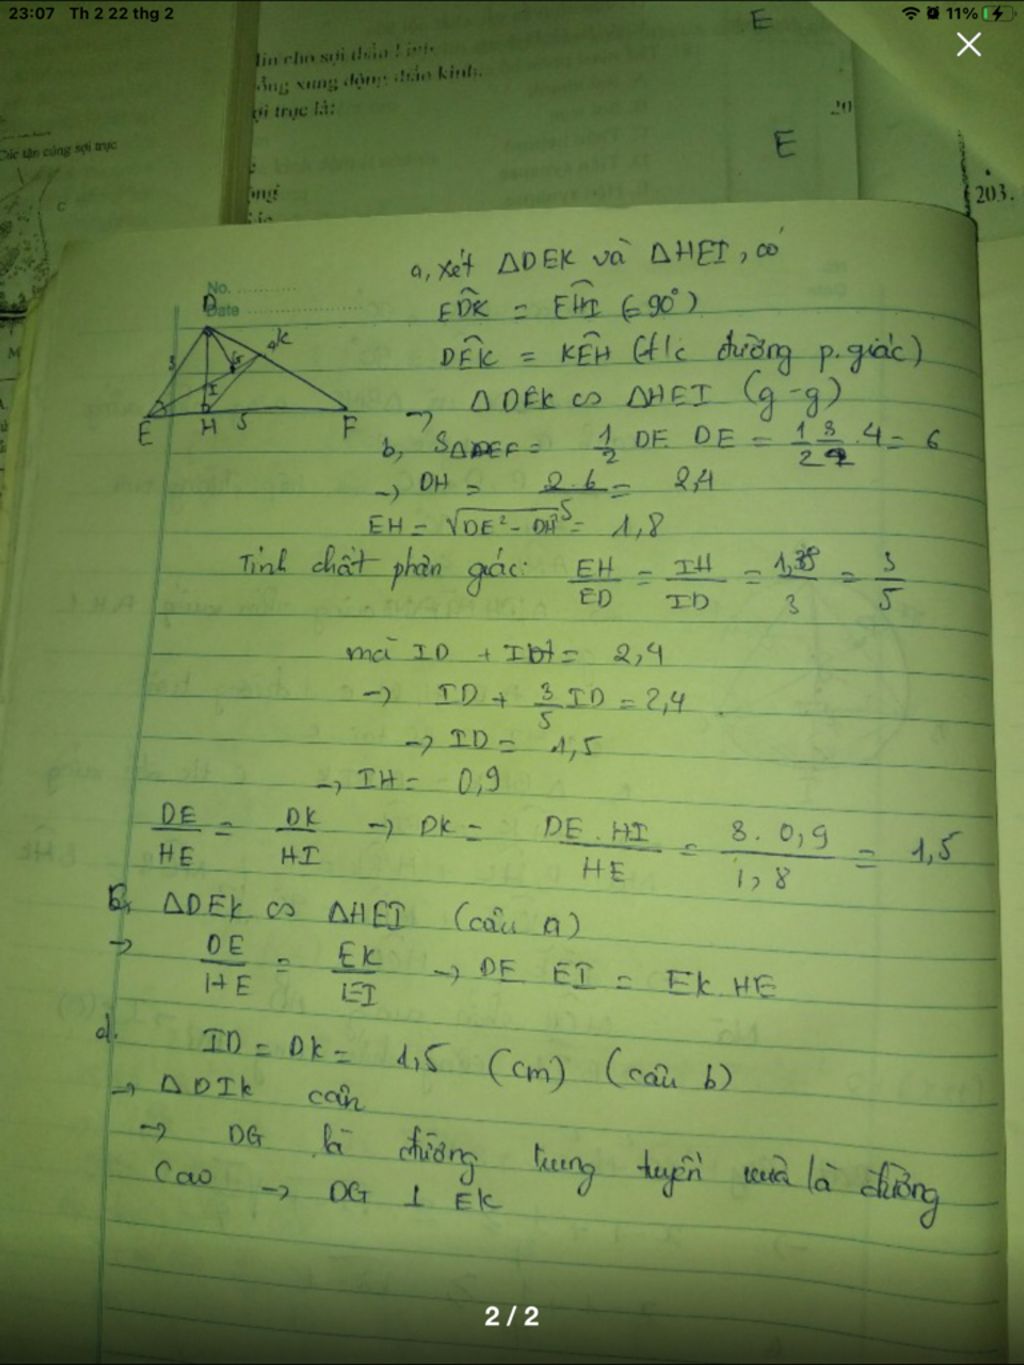 23:07 Th 2 22 thg 2
11%
E
E
ẫng xung động thần kinh.
ợi trục là:
Các tận cùng sợi trục
C
20
203.
No.
Date
a, xét ΔDEK và ΔHEI, có
EDK = EHI (=90°)
DEK = KEH (t/c đường p.giác)
→ ΔDEK ∽ ΔHEI (g-g)
D
K
G
3
I
E H 5 F
b, SΔDEF = 1/2 DE DE = 1/2 3 .4 = 6
→ DH = 2.6/5 = 2,4
EH = √DE² - DH² = 1,8
Tính chất phân giác: EH/ED = IH/ID = 1,8/3 = 3/5
mà ID + IH = 2,4
→ ID + 3/5 ID = 2,4
→ ID = 1,5
→ IH = 0,9
DE/HE = DK/HI → DK = DE.HI/HE = 3.0,9/1,8 = 1,5
ΔDEK ∽ ΔHEI (câu a)
→ DE/HE = EK/EI → DE EI = EK.HE
d.
ID = DK = 1,5 (cm) (câu b)
→ ΔDIK cân
→ DG là đường trung tuyến vừa là đường
cao → DG ⊥ EK
2 / 2